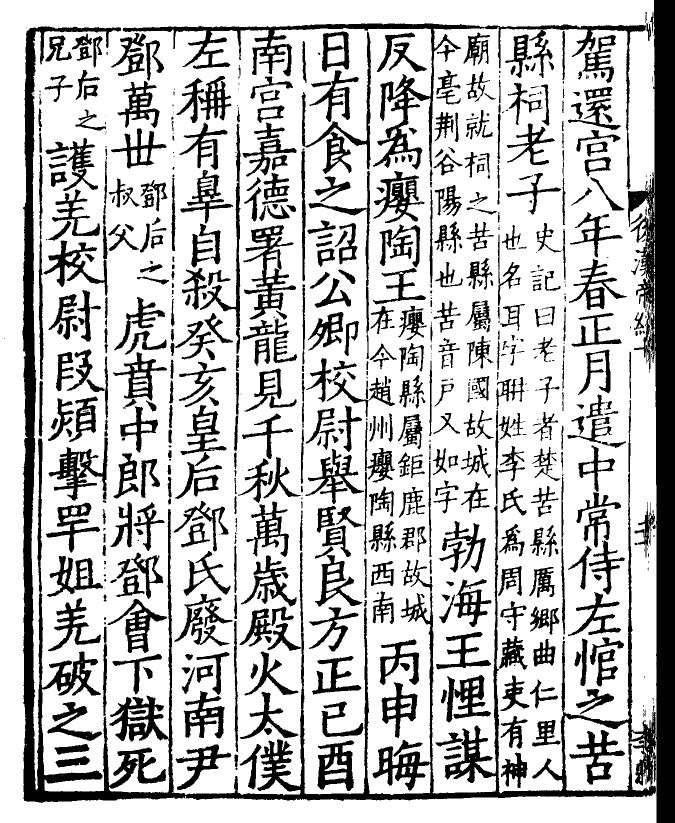 駕還宮八年春正月遣中常侍左悺之苦
縣祠老子
史記曰老子者楚苦縣厲鄉曲仁里人
也名耳字聃姓李氏爲周守藏吏有神
廟故就祠之苦縣屬陳國故城在
今亳荆谷陽縣也苦音戸又如字
勃海王悝謀
反降爲癭陶王
癭陶縣屬鉅鹿郡故城
在今趙州癭陶縣西南
丙申晦
日有食之詔公卿校尉舉賢良方正己酉
南宮嘉德署黃龍見千秋萬歲殿火太僕
左稱有辠自殺癸亥皇后鄧氏廢河南尹
鄧萬丗
鄧后之
叔父
虎賁中郎將鄧會下獄死
鄧后之
兄子
護羌校尉段熲擊罕姐羌破之三